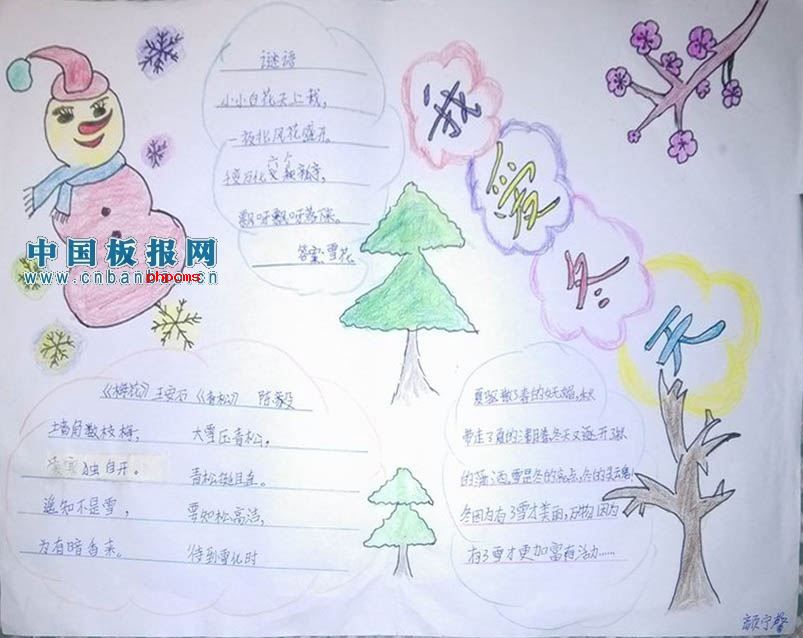 谜语
小小白花天上栽,
一夜北风花盛开。
千变万化
飘呀飘呀
答案:雪花
我爱冬天
中国板报网
www.cnbanbao.cn
phpoms
《梅花》王安石《青松》 陈毅
墙角数枝梅, 大雪压青松。
独自开。 青松挺且直。
遥知不是雪, 要知松高洁,
为有暗香来。 待到雪化时
夏驱散了春的妩媚,秋
带走了夏的 冬天又逐开了秋
的 雪是冬的亮点,冬的灵魂,
冬因为有了雪才美丽,万物因为
有了雪才更加富有活力……